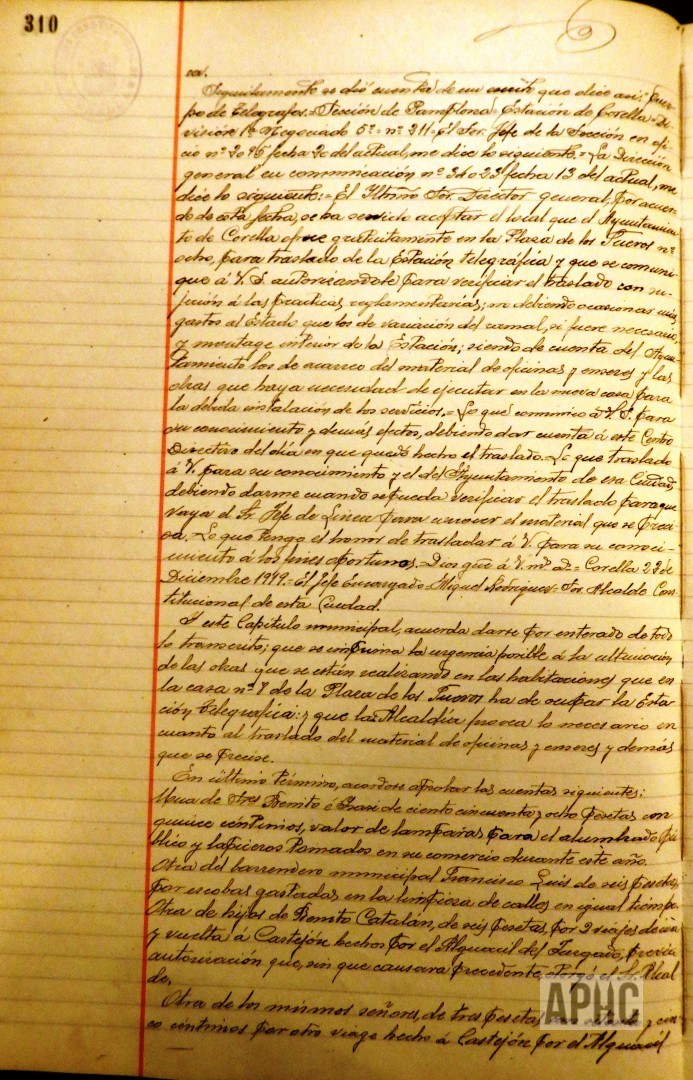 310
Seguidamente se dió cuenta de un escrito que dice así: Cuer-
po de Telégrafos.=Sección de Pamplona=Estación de Corella=Di-
visión 1ª Negociado 5º=nº 211=El Sor. Jefe de la Sección en ofi-
cio nº 2096 fecha 20 del actual, me dice lo siguiente.=La Dirección
general en comunicación nº 34023 fecha 13 del actual, me
dice lo siguiente:=El Iltmo Sor Director general, por acuer-
do de esta fecha, se ha servido aceptar el local que el Ayuntamien-
to de Corella ofrece gratuitamente en la Plaza de los Fueros nº
ocho, para traslado de la Estación telegráfica y que se comuni-
que á V. S. autorizandole para verificar el traslado con su-
jeción á las practicas reglamentarias; no debiendo ocasionar más
gastos al Estado que los de variación del ramal, si fuere necesario,
y montage interior de la Estación; siendo de cuenta del Ayun-
tamiento los de acarreo del material de oficinas y enseres y las
obras que haya necesidad de ejecutar en la nueva casa para
la debida instalación de los servicios.=Lo que comunico á V. S. para
su conocimiento y demás efectos, debiendo dar cuenta á este Centro
Directivo del día en que quede hecho el traslado. Lo que traslado
á V. para su conocimiento y el del Ayuntamiento de esa Ciudad,
debiendo darme cuando se pueda verificar el traslado para que
vaya el Sr. Jefe de Linea para conocer el material que se preci-
sa.=Lo que tengo el honor de trasladar á V. para su conoci-
miento á los fines oportunos.=Dios gue á V. ms. as.=Corella 23 de
Diciembre =El Jefe Encargado=Miguel Rodriguez=Sor. Alcalde Cons-
titucional de esta Ciudad.
Y este Capitulo municipal, acuerda darse por enterado de todo
lo transcrito; que se imprima la urgencia posible á la ultimación
de las obras que se están realizando en las habitaciones que en
la casa nº 8 de la Plaza de los Fueros ha de ocupar la Esta-
ción telegrafica: y que la Alcaldía provea lo necesario en
cuanto al traslado del material de oficinas y enseres y demás
que se precise.
En último término, acordose aprobar las cuentas siguientes:
Una de Benito é de ciento cincuenta y ocho pesetas con
quince céntimos, valor de lamparas para el alumbrado pú-
blico y lapiceros tomados en su comercio durante este año.
Otra del barrendero municipal Francisco Luis de seis pesetas,
por escobas gastadas en la limpieza de calles en igual tiempo.
Otra de hijos de Benito Catalán, de seis pesetas, por 2 viajes de ida
y vuelta á Castejón hechos por el Alguacil del Juzgado, previa
autorización que, sin que causara precedente, otorgó el Sr. Alcal-
de.
Otra de los mismos señores, de tres pesetas y cin-
co céntimos por otro viage hecho á Castejón por el Alguacil
APHC